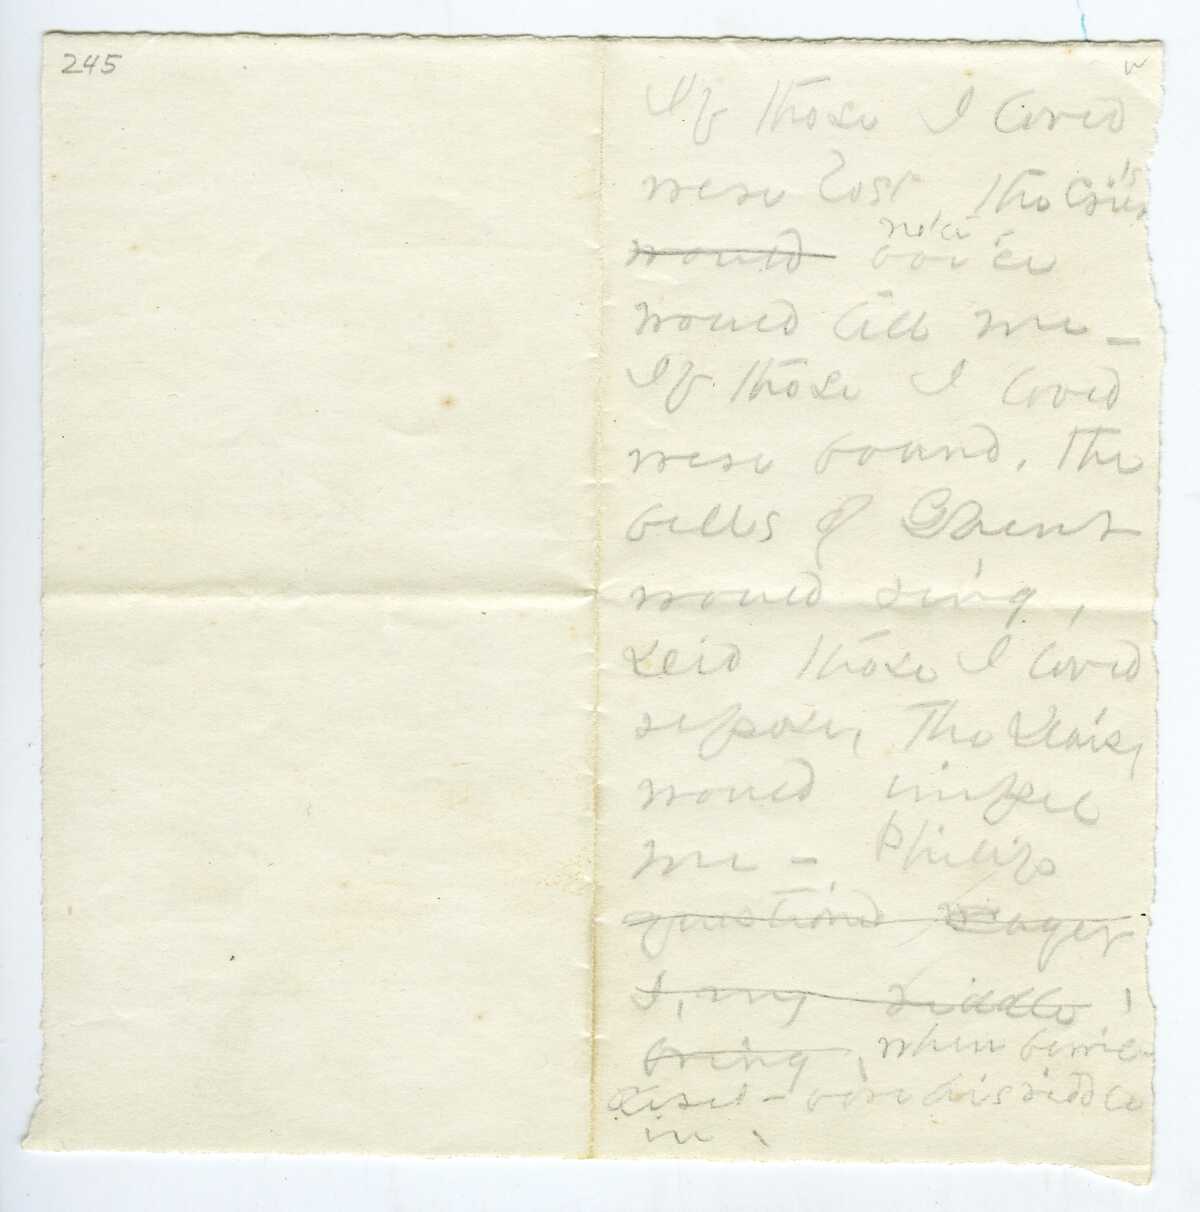 245
If those I loved
were lost The Crier's
would voice
would tell me –
If those I loved
were found, the
bells of Ghent
would ring,
Did those I loved
repose, The Daisy
would impel
me – Philip
questioned eager
I, my riddle
bring, when bewil-
dered – bore his riddle
in